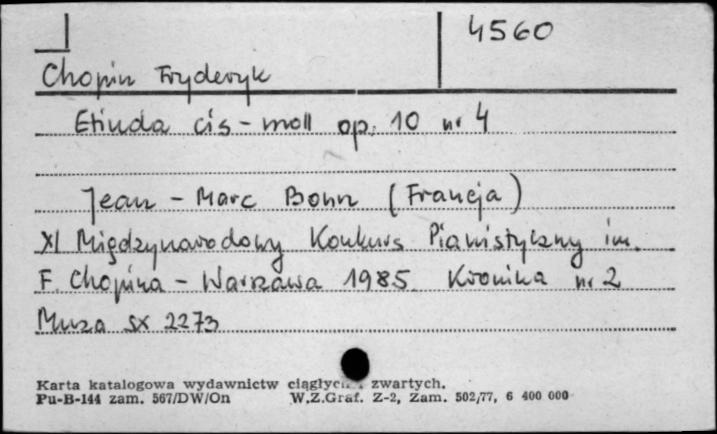 4560
Chopin Fryderyk
Etiuda cis-moll op. 10 nr 4
Jean-Marc Bonn (Francja)
XI Międzynarodowy Konkurs Pianistyczny im.
F. Chopina - Warszawa 1985. Kronika nr 2
Muza SX 2273
Karta katalogowa wydawnictw ciągłych i zwartych.
Pu-B-144 zam. 567/DW/On W.Z.Graf. Z-2, Zam. 502/77, 6 400 000